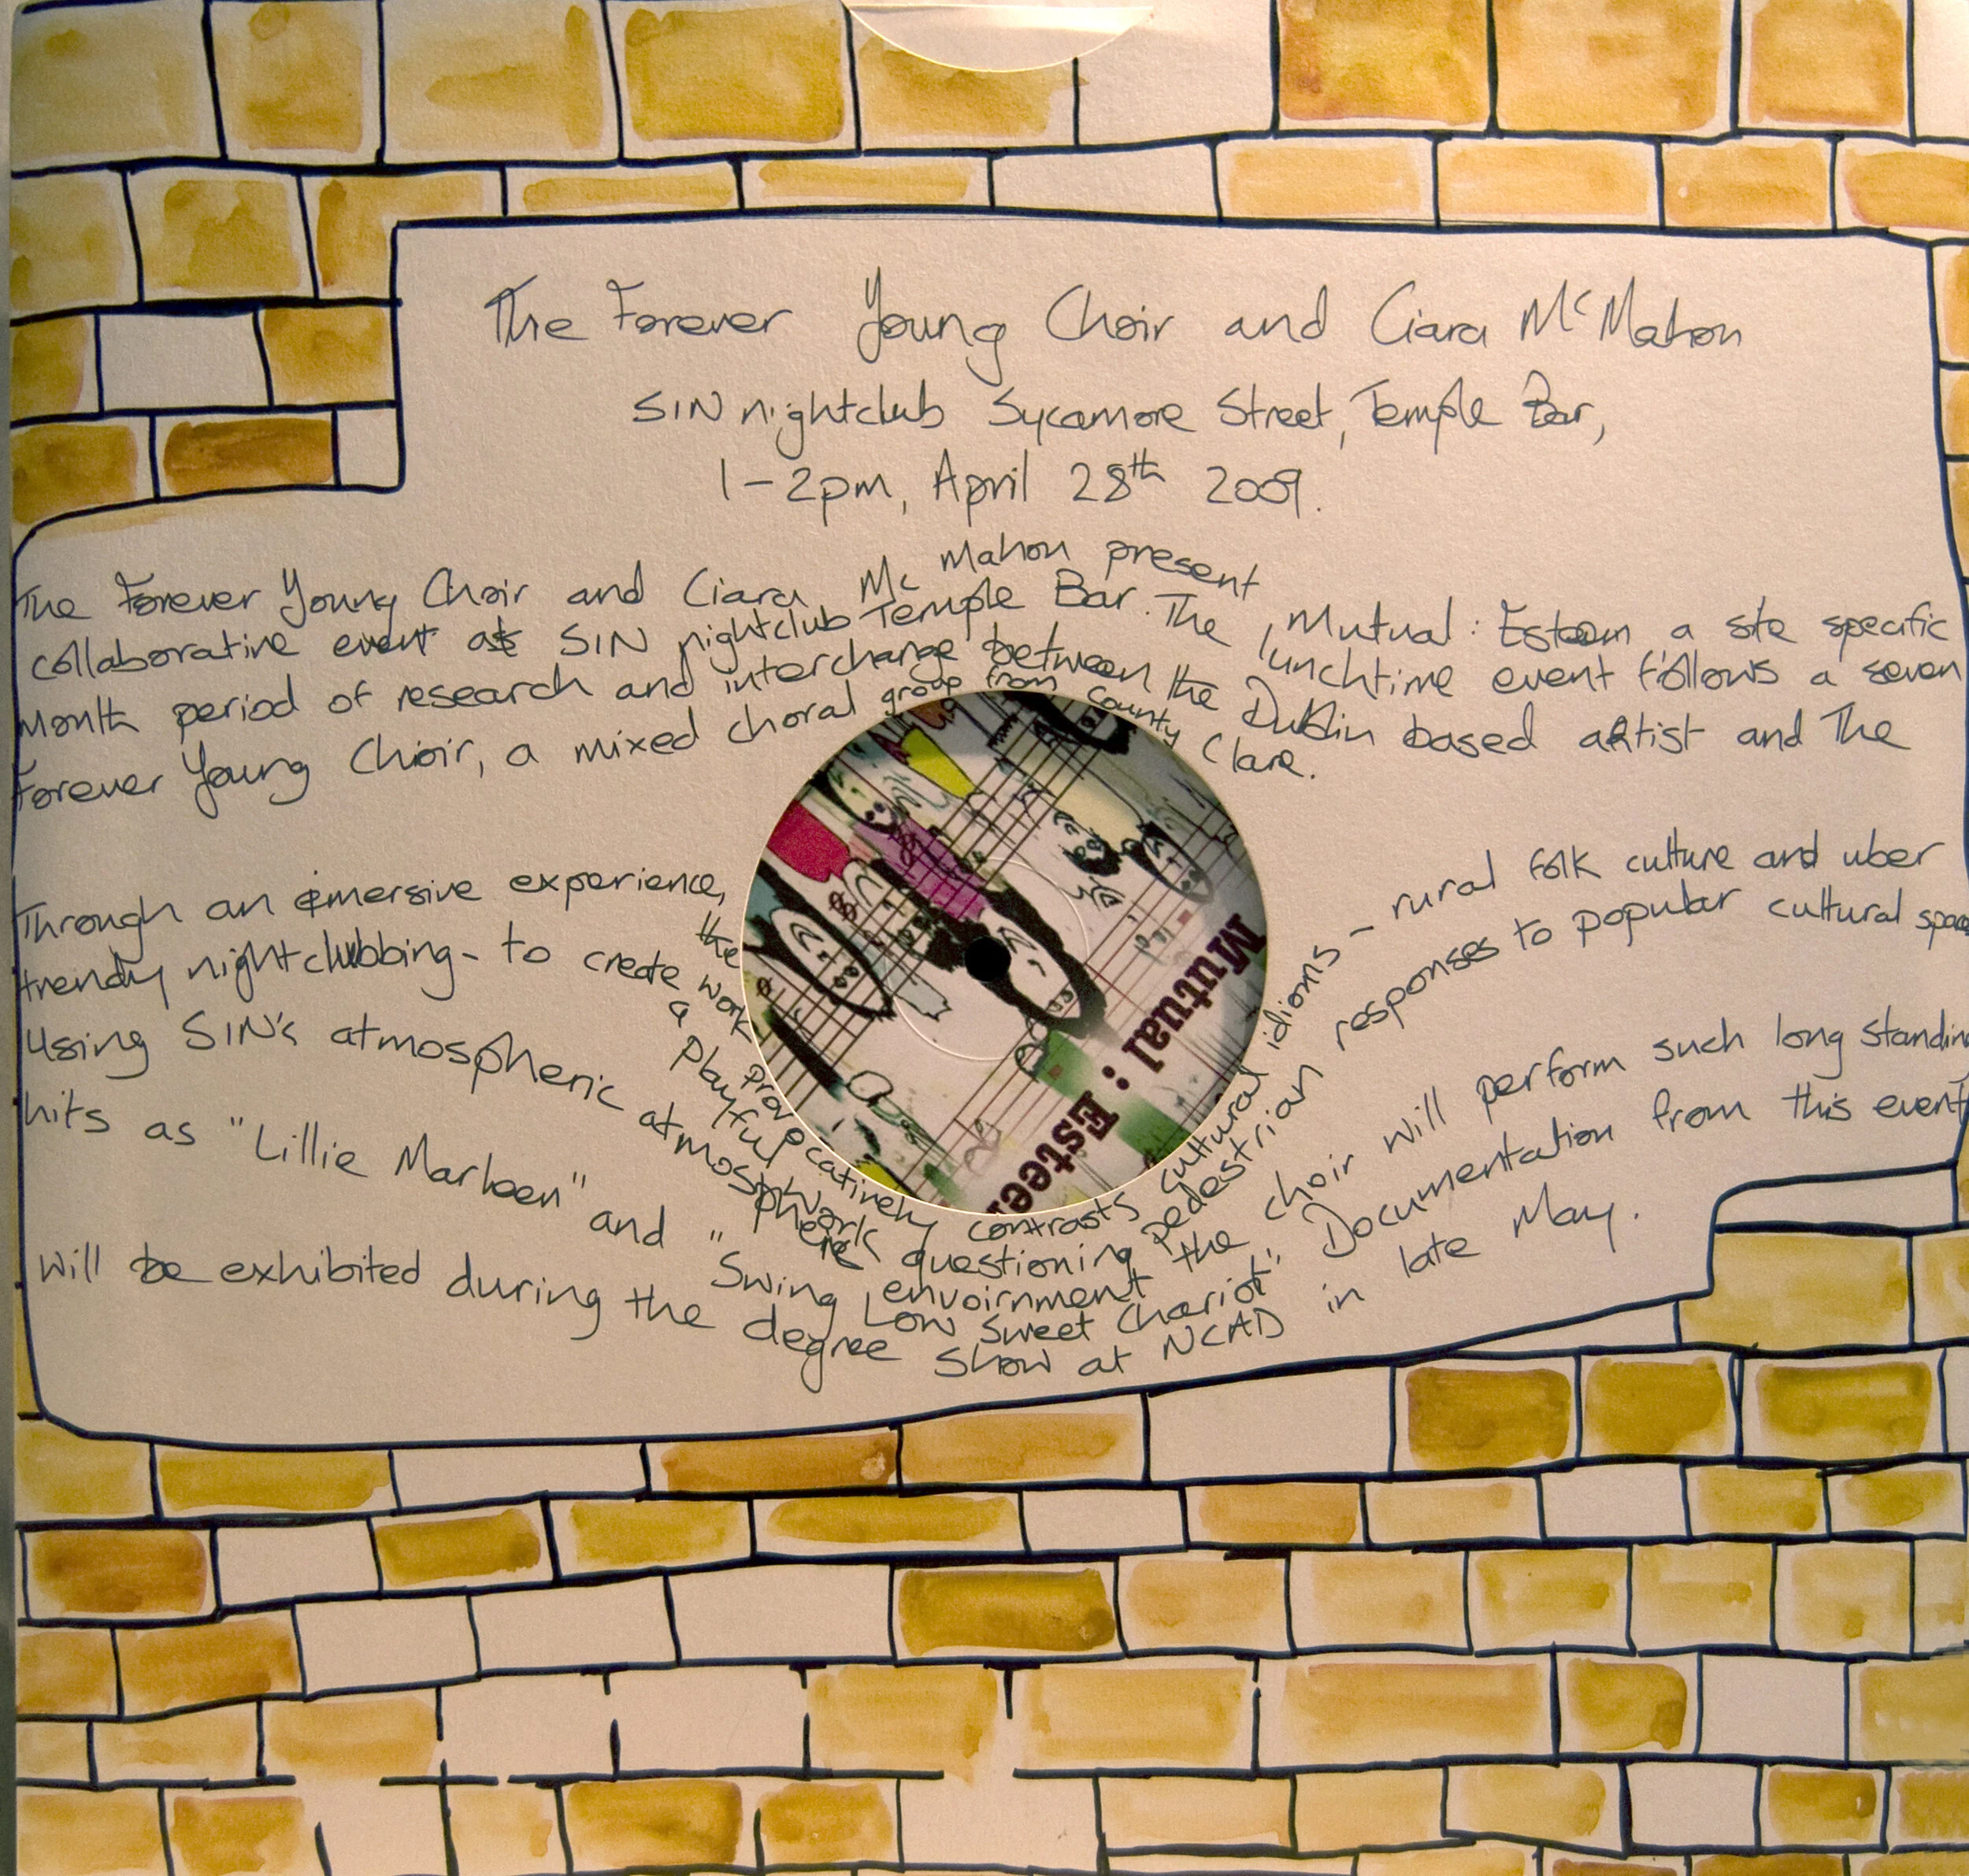 The Forever Young Choir and Ciara McMahon
SIN nightclub Sycamore Street, Temple Bar,
1-2pm, April 28th 2009.
The Forever Young Choir and Ciara Mc Mahon present, Mutual : Esteem a site specific
collaborative event at SIN nightclub Temple Bar. The lunchtime event follows a seven
month period of research and interchange between the Dublin based artist and The
Forever Young Choir, a mixed choral group from County Clare.
Through an imersive experience, the work provocatively contrasts cultural idioms - rural folk culture and uber
trendy nightclubbing - to create a playful work questioning pedestrian responses to popular cultural space
Using SIN's atmospheric atmosphere envoirnment the choir will perform such long standing
hits as "Lillie Marleen" and "Swing Low Sweet Chariot." Documentation from this event
will be exhibited during the degree show at NCAD in late May.
Mutual : Esteem